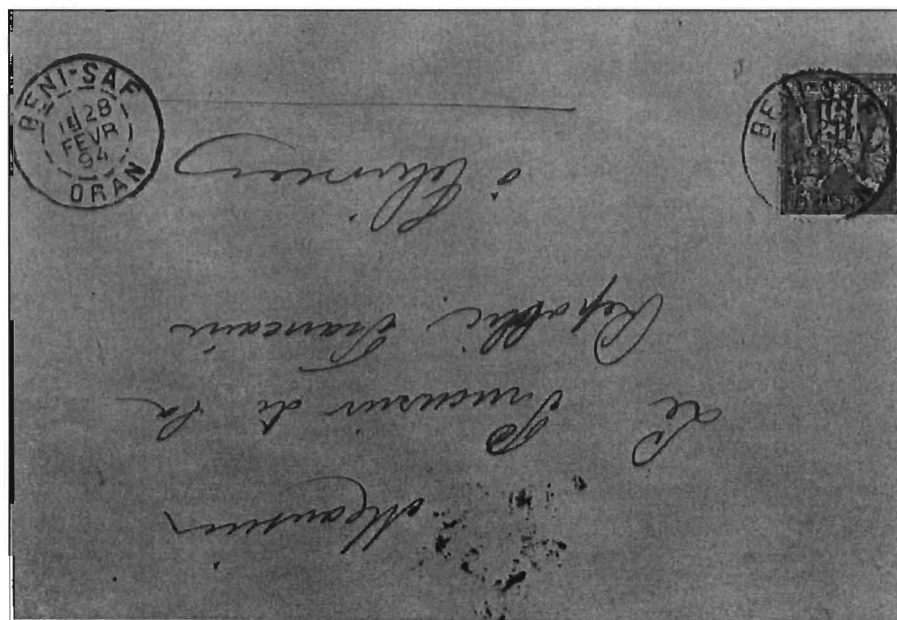 BENI-SAF
1E/28
FEVR
94
ORAN
BENI-SAF
Monsieur
Le Procureur de la
Republic Francaise
à Tlemcen